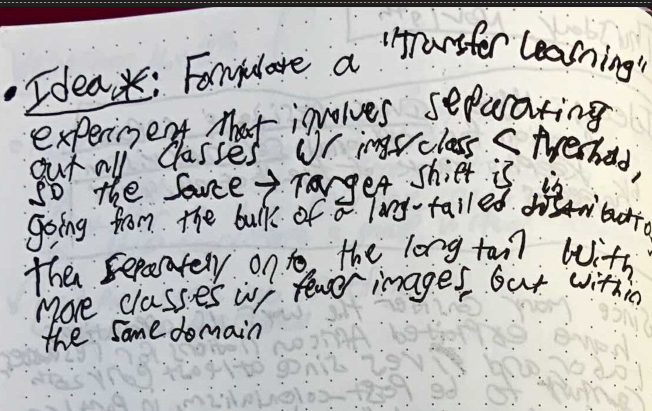 • Idea*: Formulate a "Transfer Learning"
experiment that involves separating
out all classes w/ imgs/class < threshold,
so the source → target shift is in
going from the bulk of a long-tailed distribution
then separately on to the long tail with
more classes w/ fewer images, but within
the same domain